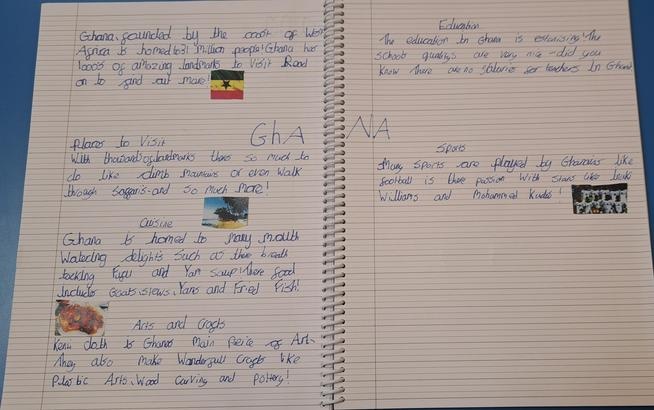 Ghana, founded by the coast of West
Africa is homed to 31 million people! Ghana has
1000s of amazing landmarks to visit. Read
on to find out more!
GhA NA
Places to Visit
With thousand of landmarks theres so much to
do like climb mountains or even walk
through Saffaris-and so much more!
Cuisine
Ghana is homed to many mouth
watering delights such as there breath
tacking Fufu and Yam Soup! There food
include Goats, stews, Yams and Fried Fish!
Arts and Crafts
Kent cloth is Ghanas Main peice of Art.
They also make Wanderfull Crafts like
Plastic Arts, Wood Carving and Pottery!
Education
The education in Ghana is estonising! The
Schools qualitys are very nice - did you
Know there are no Salaries for teachers in Ghana
Sports
Many Sports are played by Ghanaians like
football is there passion With stars like Inaki
Williams and Mohammed Kudus!